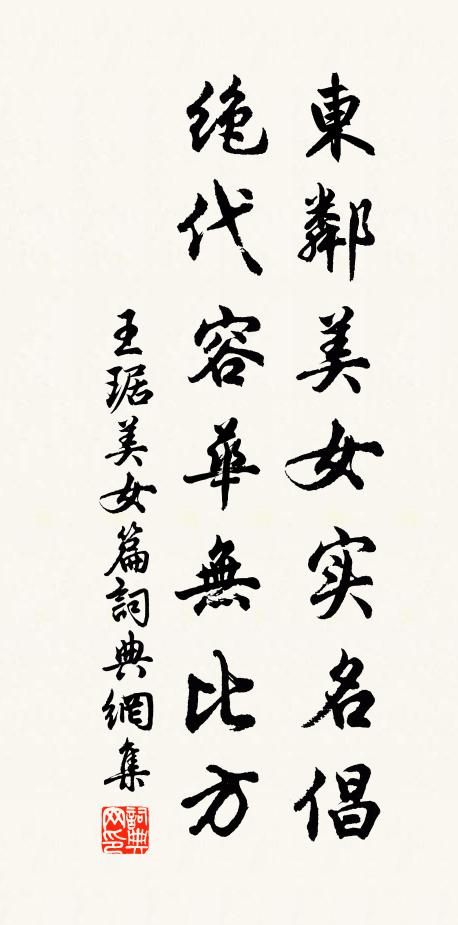 東鄰美女实名倡
絶代容華無比方
王琚美女篇詞典網集
詞典網印